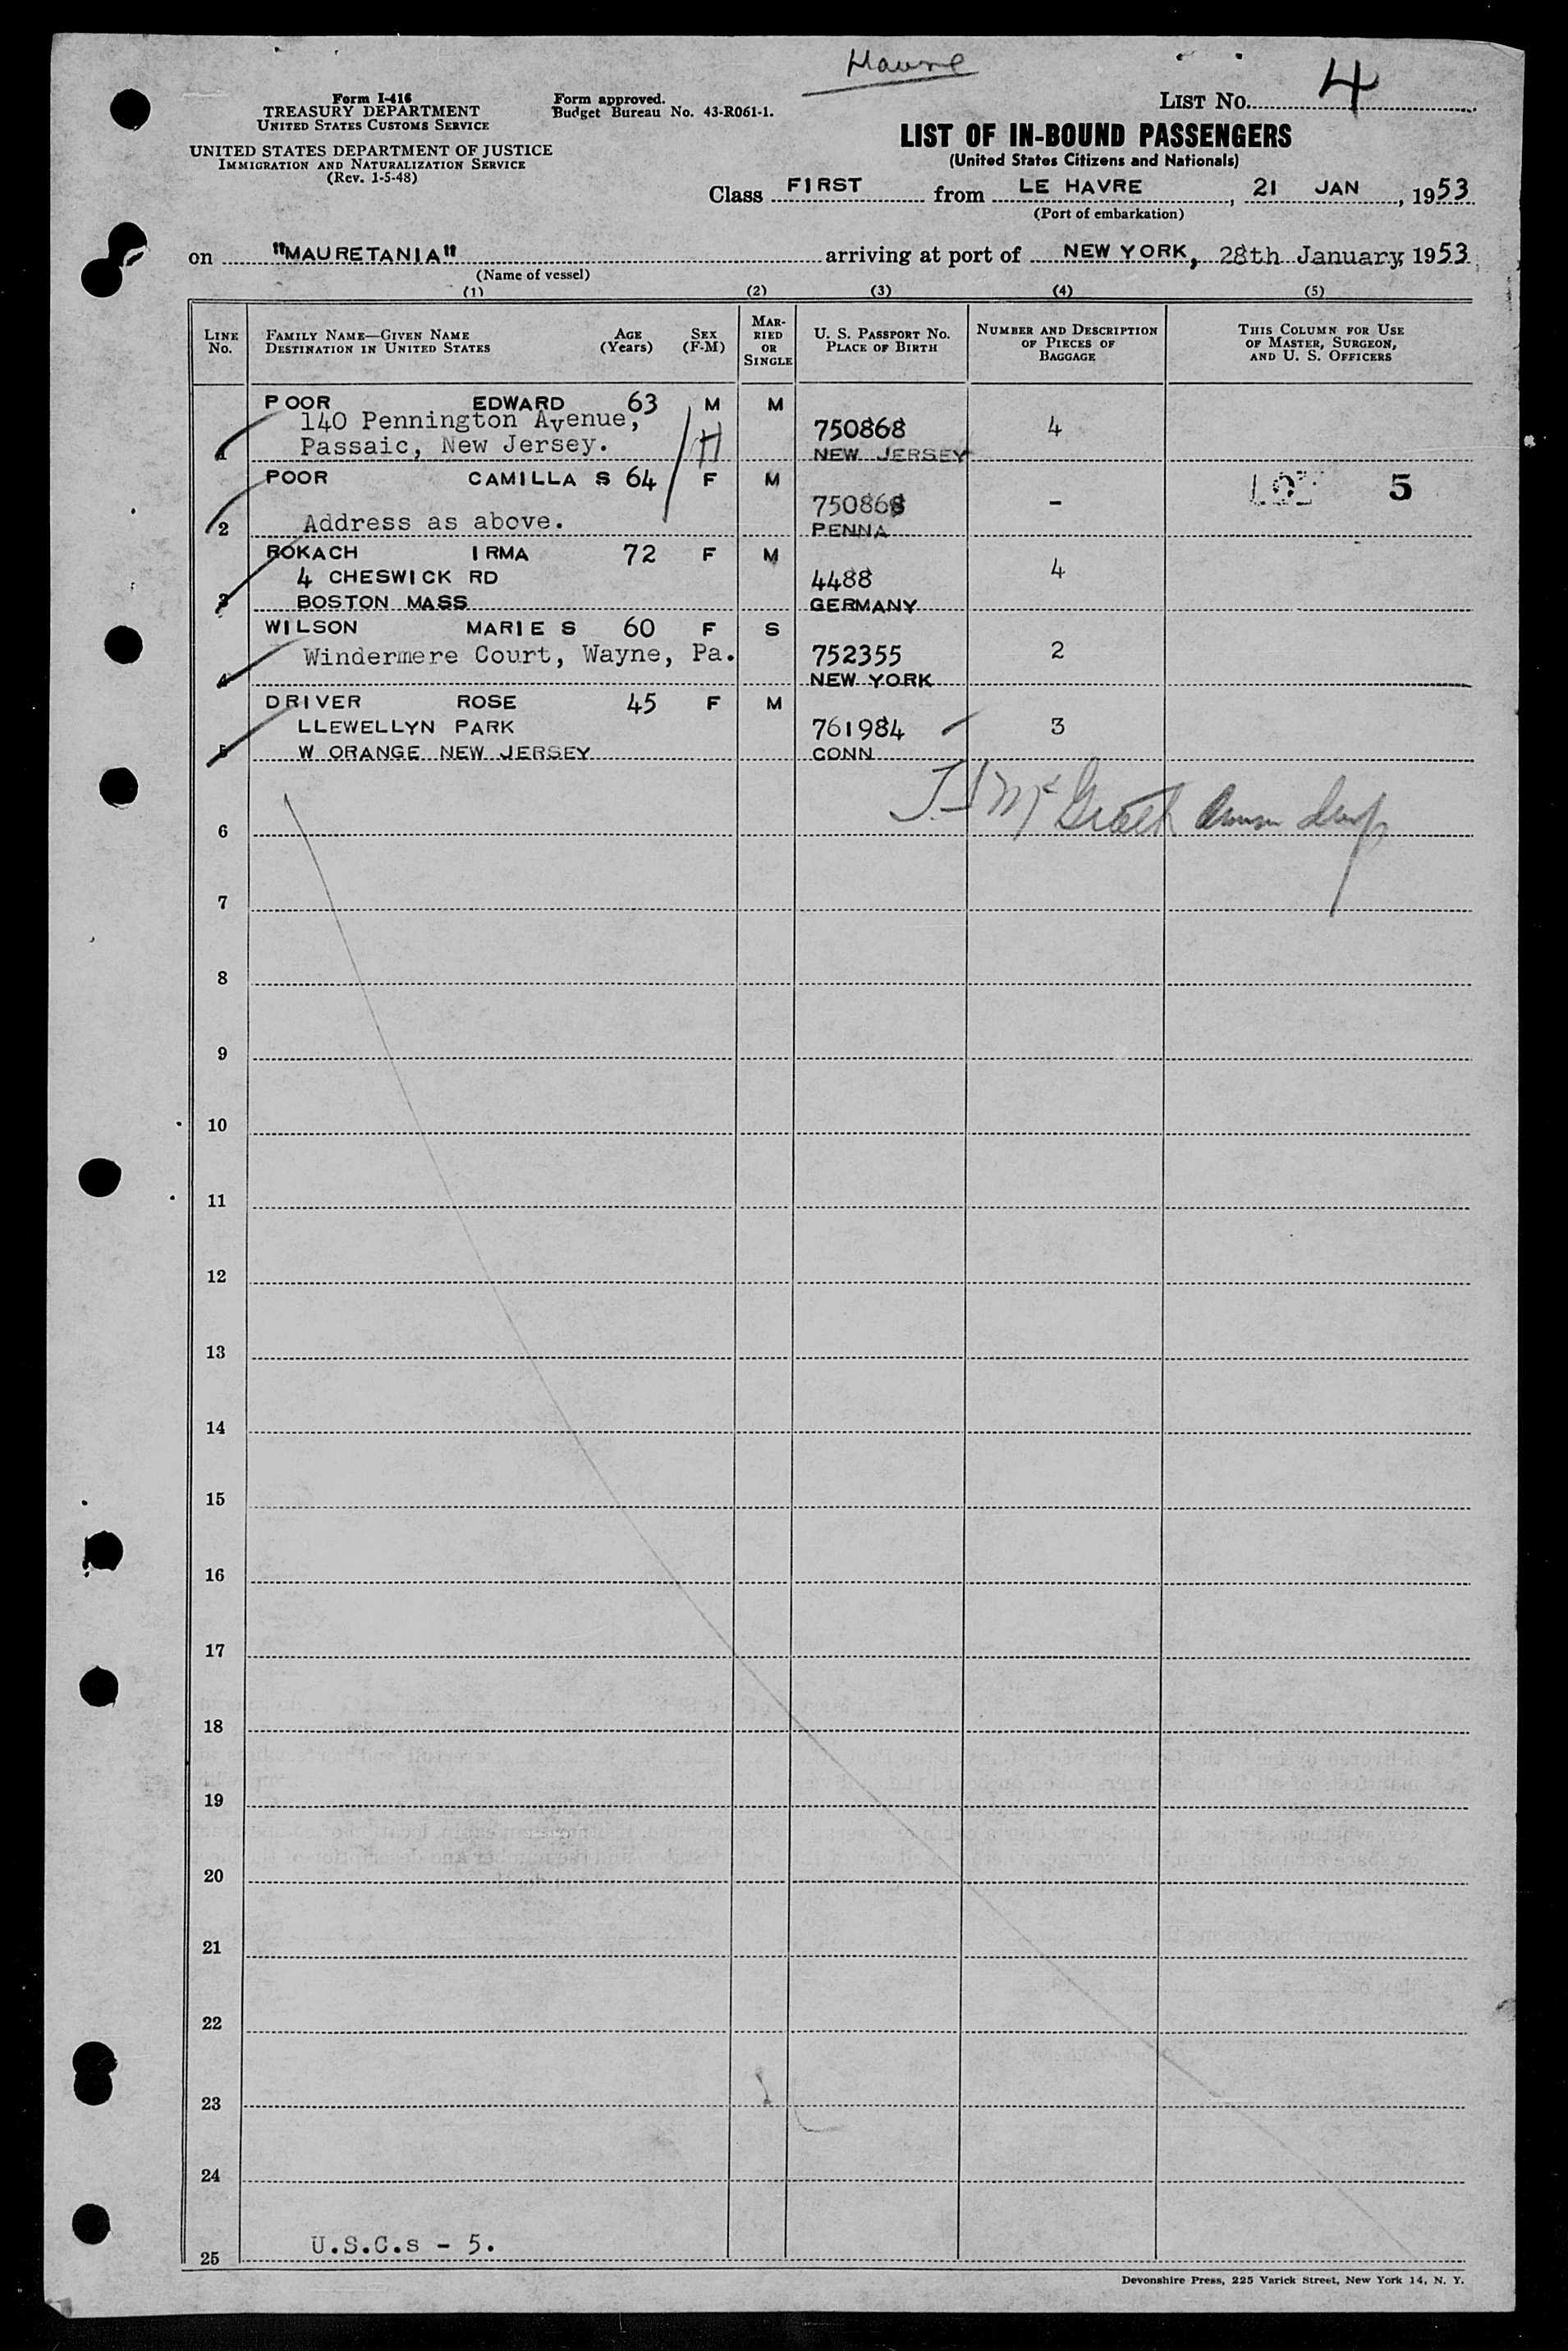 Havre
Form I-416
TREASURY DEPARTMENT
UNITED STATES CUSTOMS SERVICE
UNITED STATES DEPARTMENT OF JUSTICE
IMMIGRATION AND NATURALIZATION SERVICE
(Rev. 1-5-48)
Form approved.
Budget Bureau No. 43-R061-1.
LIST No. 4
LIST OF IN-BOUND PASSENGERS
(United States Citizens and Nationals)
Class FIRST from LE HAVRE, 21 JAN, 1953
(Port of embarkation)
on "MAURETANIA" arriving at port of NEW YORK, 28th January, 1953
(Name of vessel)
(1) (2) (3) (4) (5)
LINE No. FAMILY NAME—GIVEN NAME DESTINATION IN UNITED STATES AGE (Years) SEX (F-M) MARRIED OR SINGLE U. S. PASSPORT No. PLACE OF BIRTH NUMBER AND DESCRIPTION OF PIECES OF BAGGAGE THIS COLUMN FOR USE OF MASTER, SURGEON, AND U. S. OFFICERS
POOR EDWARD 63 M M
140 Pennington Avenue, 750868 4
1 Passaic, New Jersey. H NEW JERSEY
POOR CAMILLA S 64 F M 5
750868 -
2 Address as above. PENNA
ROKACH IRMA 72 F M
4 CHESWICK RD 4488 4
3 BOSTON MASS GERMANY
WILSON MARIE S 60 F S
Windermere Court, Wayne, Pa. 752355 2
4 NEW YORK
DRIVER ROSE 45 F M
LLEWELLYN PARK 761984 3
5 W ORANGE NEW JERSEY CONN
McGrath
6
7
8
9
10
11
12
13
14
15
16
17
18
19
20
21
22
23
24
25 U.S.C.s - 5.
Devonshire Press, 225 Varick Street, New York 14, N. Y.